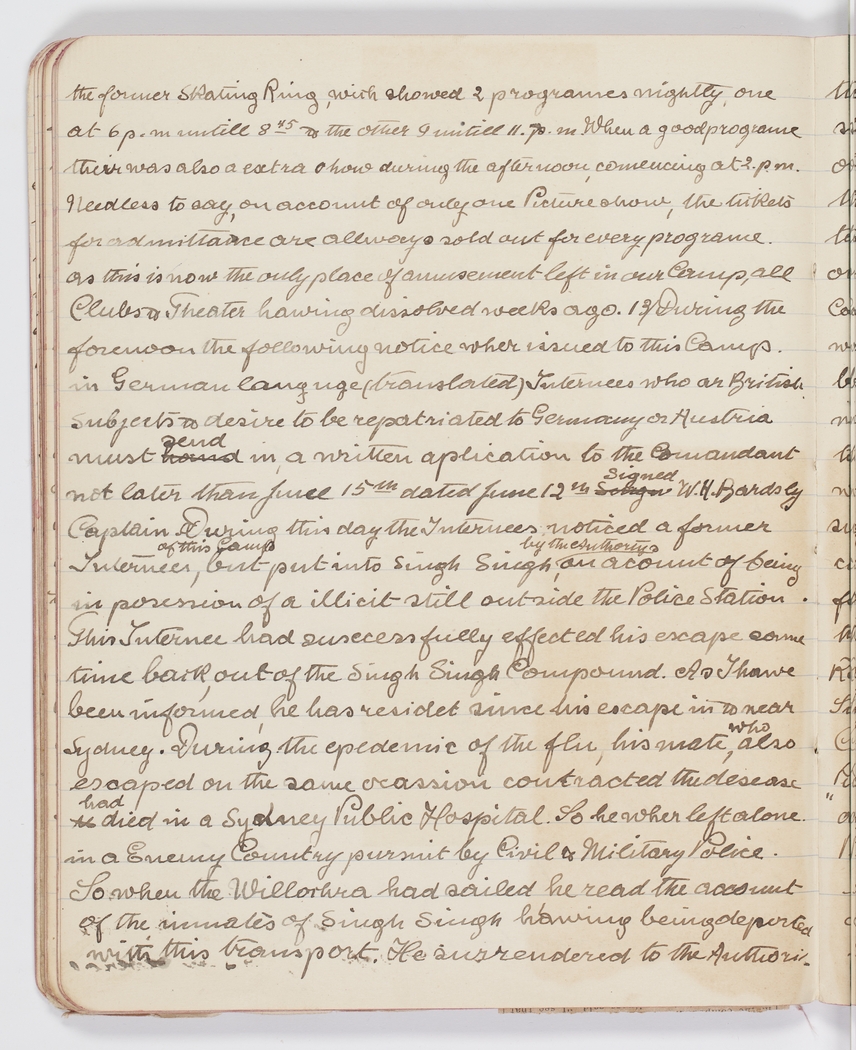 the former Skating Ring, wich showed 2 programes nightly, one
at 6 p.m untill 8 45 & the other 9 untill 11. p. m When a good programe
their was also a extra show during the afternoon, comencing at 2. p.m.
Needless to say, on account of only one Picture show, the tickets
for admittance are allways sold out for every programe.
as this is now the only place of amusement left in our Camp, all
Clubs & Theater hawing dissolved weeks ago. 13/ During the
forenoon the following notice wher issued to this Camp.
in German languge (translated) Internees who ar British
Subjects & desire to be repatriated to Germany or Austria
must hand send in, a written application to the Comandant
not later than June 15th dated June 12th Signed W. H. Bardsly
Captain. During this day the Internees, noticed a former
Internees, of this Camp but put into Singh Singh, by the authoritys on acount of being
in posession of a illicit still outside the Police Station.
This Internee had susecessfully effected his escape some
time back, out of the Singh Singh Compound. As I hawe
been informed, he has residet since his escape in & near
Sydney. During the epedemic of the flu, his mate, who also
escaped on the same ocassion contracted the desease
& had died in a Sydney Public Hospital. So he wher left alone.
in a Enemy Country pursuit by Civil & Military Police.
So when the Willochra had sailed he read the account
of the inmates of Singh Singh hawing being deported
with this transport. He surrendered to the Authori-